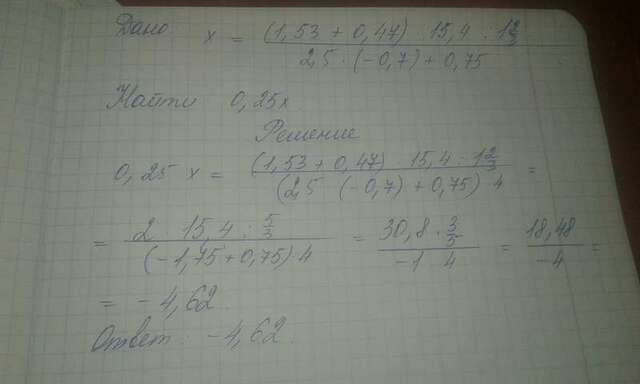 Дано x = (1,53 + 0,47) · 15,4 : 1 2/3 / 2,5 · (-0,7) + 0,75
Найти 0,25x
Решение
0,25 x = (1,53 + 0,47) · 15,4 : 1 2/3 / (2,5 · (-0,7) + 0,75) · 4 =
= 2 · 15,4 : 5/3 / (-1,75 + 0,75) · 4 = 30,8 · 3/5 / -1 · 4 = 18,48 / -4 =
= -4,62.
Ответ: -4,62.